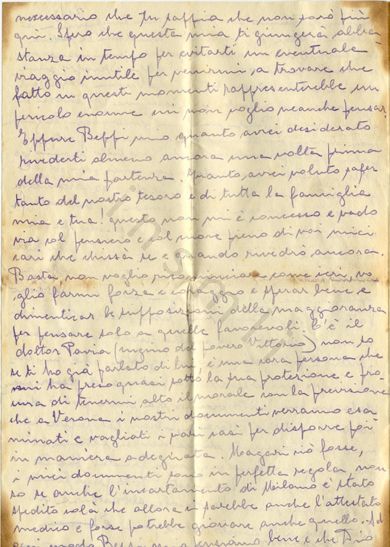 necessario che tu sappia che non sarò più
qui. Spero che questa mia ti giungerà abba-
stanza in tempo per evitarti un eventuale
viaggio inutile per venirmi a trovare che
fatto in questi momenti rappresenterebbe un
pericolo enorme cui non voglio neanche pensar.
Eppure Beppi mio quanto avrei desiderato
rivederti almeno ancora una volta prima
della mia partenza. Quanto avrei voluto saper
tanto del nostro tesoro e di tutta la famiglia
mia e tua! Questo non mi è concesso e vado
via col pensiero e col cuore pieno di voi miei
cari che chissà se e quando rivedrò ancora.
Basta, non voglio ricominciare come ieri, vo
glio farmi forza e coraggio e sperar bene e
dimenticar le supposizioni della maggioranza
per pensare solo a quelle favorevoli. C'è il
dottor Pavia (cugino del povero Vittorio) non so
se ti ho già parlato di lui, è una cara persona che
mi ha preso quasi sotto la sua protezione e pro
cura di tenermi alto il morale con la previsione
che a Verona i nostri documenti verranno esa
minati e vagliati i vari casi per disporre poi
in maniera adeguata. Magari ciò fosse,
i miei documenti sono in perfetta regola, non
so se anche l'incartamento di Milano è stato
spedito colà che allora ci sarebbe anche l'attestato
medico e forse potrebbe giovare anche quello.
Beppi che Dio